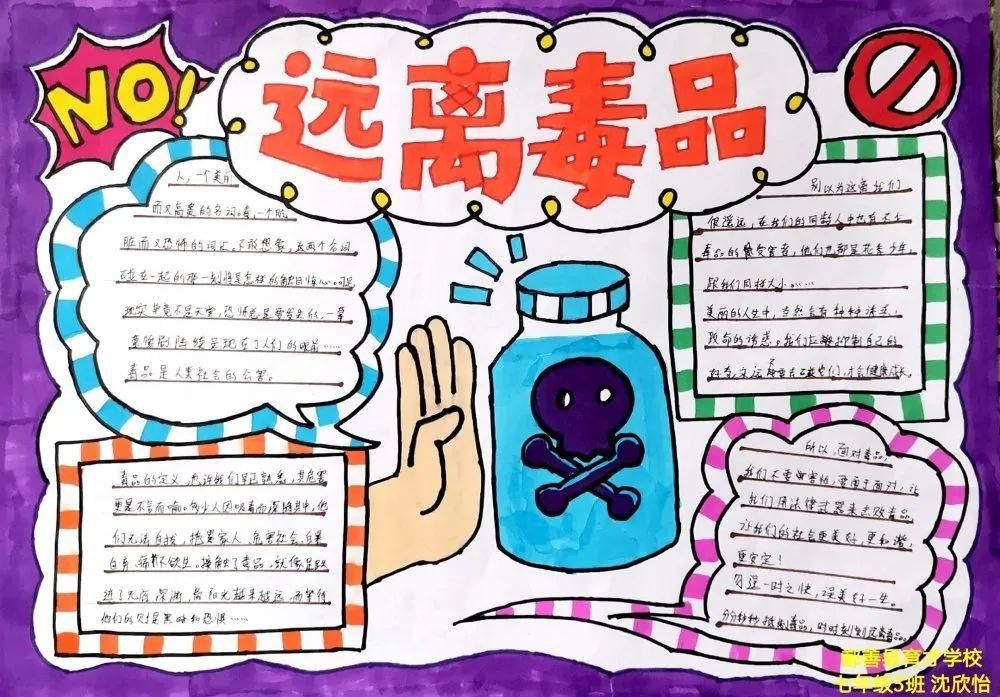 NO!
远离毒品
人,一个美丽
而又高贵的名词。毒,一个肮
脏而又恐怖的词汇。不敢想象,这两个名词
碰在一起的那一刻将是怎样的触目惊心。可是
现实毕竟不是天堂,恐怖老是要发生的,一幕
幕惨剧陆续呈现在了人们的眼前……
毒品是人类社会的公害。
别以为这离我们
很遥远,在我们的同龄人中也有不少
毒品的受害者,他们也都是花季少年,
跟我们同样大小……
美丽的人生中,当然会有种种诱惑,
致命的诱惑。我们应抑制自己的
好奇,永远不要去碰它们,才会健康成长。
毒品的定义,也许我们早已熟悉,其危害
更是不言而喻。多少人因吸毒而深陷其中,他
们无法自拔,损害家人,危害社会,自暴
自弃,痛不欲生。接触了毒品,就像是跌
进了无底深渊,离阳光越来越远,而等待
他们的只是黑暗和恐惧……
所以,面对毒品,
我们不要害怕,要勇于面对,让
我们用法律武器来击败毒品,
让我们的社会更美好,更和谐,
更安定!
勿逞一时之快,误美好一生。
分分秒秒抵制毒品,时时刻刻远离毒品。
鄯善县育才学校
七年级3班 沈欣怡